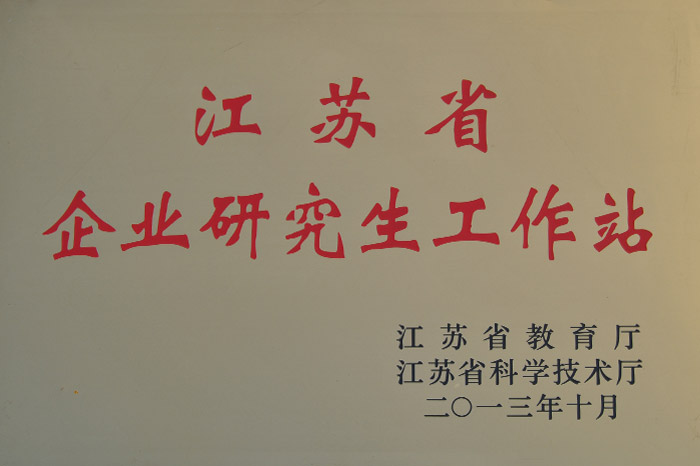 江苏省
企业研究生工作站
江苏省教育厅
江苏省科学技术厅
二〇一三年十月